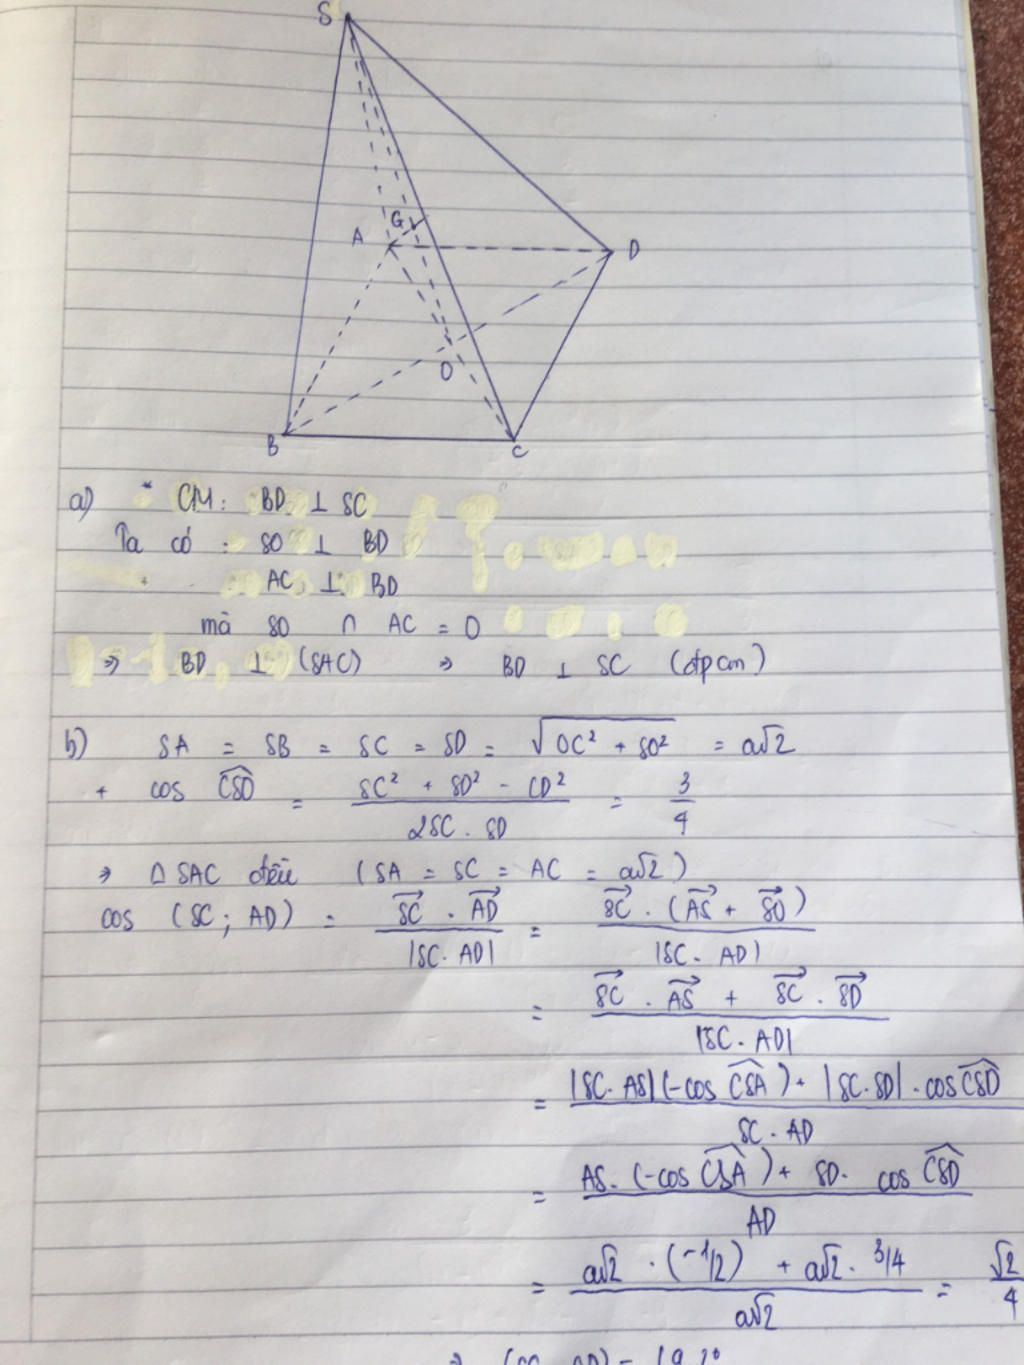 S
A
G
D
O
B
C
a) * CM: BD ⊥ SC
Ta có: SO ⊥ BD
AC ⊥ BD
mà SO ∩ AC = O
⇒ BD ⊥ (SAC) ⇒ BD ⊥ SC (đpcm)
b) SA = SB = SC = SD = √(OC² + SO²) = a√2
+ cos \widehat{CSD} = (SC² + SD² - CD²)/(2SC.SD) = 3/4
⇒ Δ SAC đều (SA = SC = AC = a√2)
cos (SC; AD) = (\vec{SC} . \vec{AD})/|SC.AD| = (\vec{SC} . (\vec{AS} + \vec{SD}))/|SC.AD|
= (\vec{SC} . \vec{AS} + \vec{SC} . \vec{SD})/|SC.AD|
= (|SC.AS|(-cos \widehat{CSA}) + |SC.SD| . cos \widehat{CSD})/(SC.AD)
= (AS.(-cos \widehat{CSA}) + SD. cos \widehat{CSD})/AD
= (a√2 . (-1/2) + a√2 . 3/4)/(a√2) = √2/4